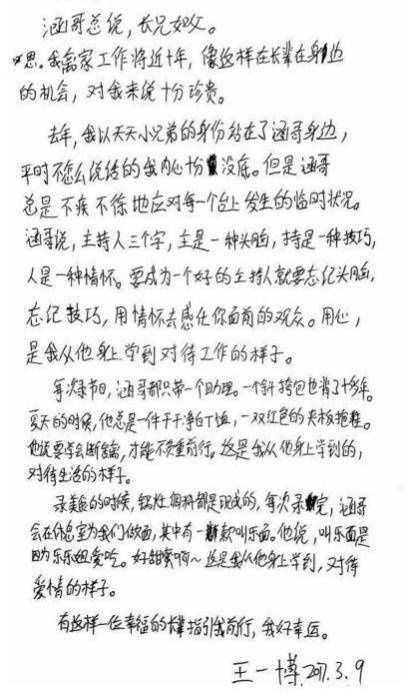 涵哥总说，长兄如父。
恩。我离家工作将近十年，像这样在长辈在身边
的机会，对我来说十分珍贵。
去年，我以天天小兄弟的身份站在了涵哥身边，
平时不怎么说话的我内心十分没底。但是涵哥
总是不疾不徐地应对每一个台上发生的临时状况。
涵哥说，主持人三个字，主是一种头脑，持是一种技巧，
人是一种情怀。要成为一个好的主持人就要忘记头脑，
忘记技巧，用情怀去感任你面前的观众。用心，
是我从他身上学到对待工作的样子。
每次录节目，涵哥都只带一个助理。一个斜挎包也背了十多年。
夏天的时候，他总是一件干干净白T恤，一双红色的夹板拖鞋。
他说要学会断舍离，才能不负重前行，这是我从他身上学到的，
对待生活的样子。
录美食的时候，锅灶调料都是现成的，每次录完，涵哥
会在休息室为我们做面，其中有一款叫乐面。他说，叫乐面是
因为乐乐姐爱吃。好甜蜜啊~这是我从他身上学到，对待
爱情的样子。
有这样一位幸福的长辈指引我前行，我好幸运。
王一博 2017.3.9